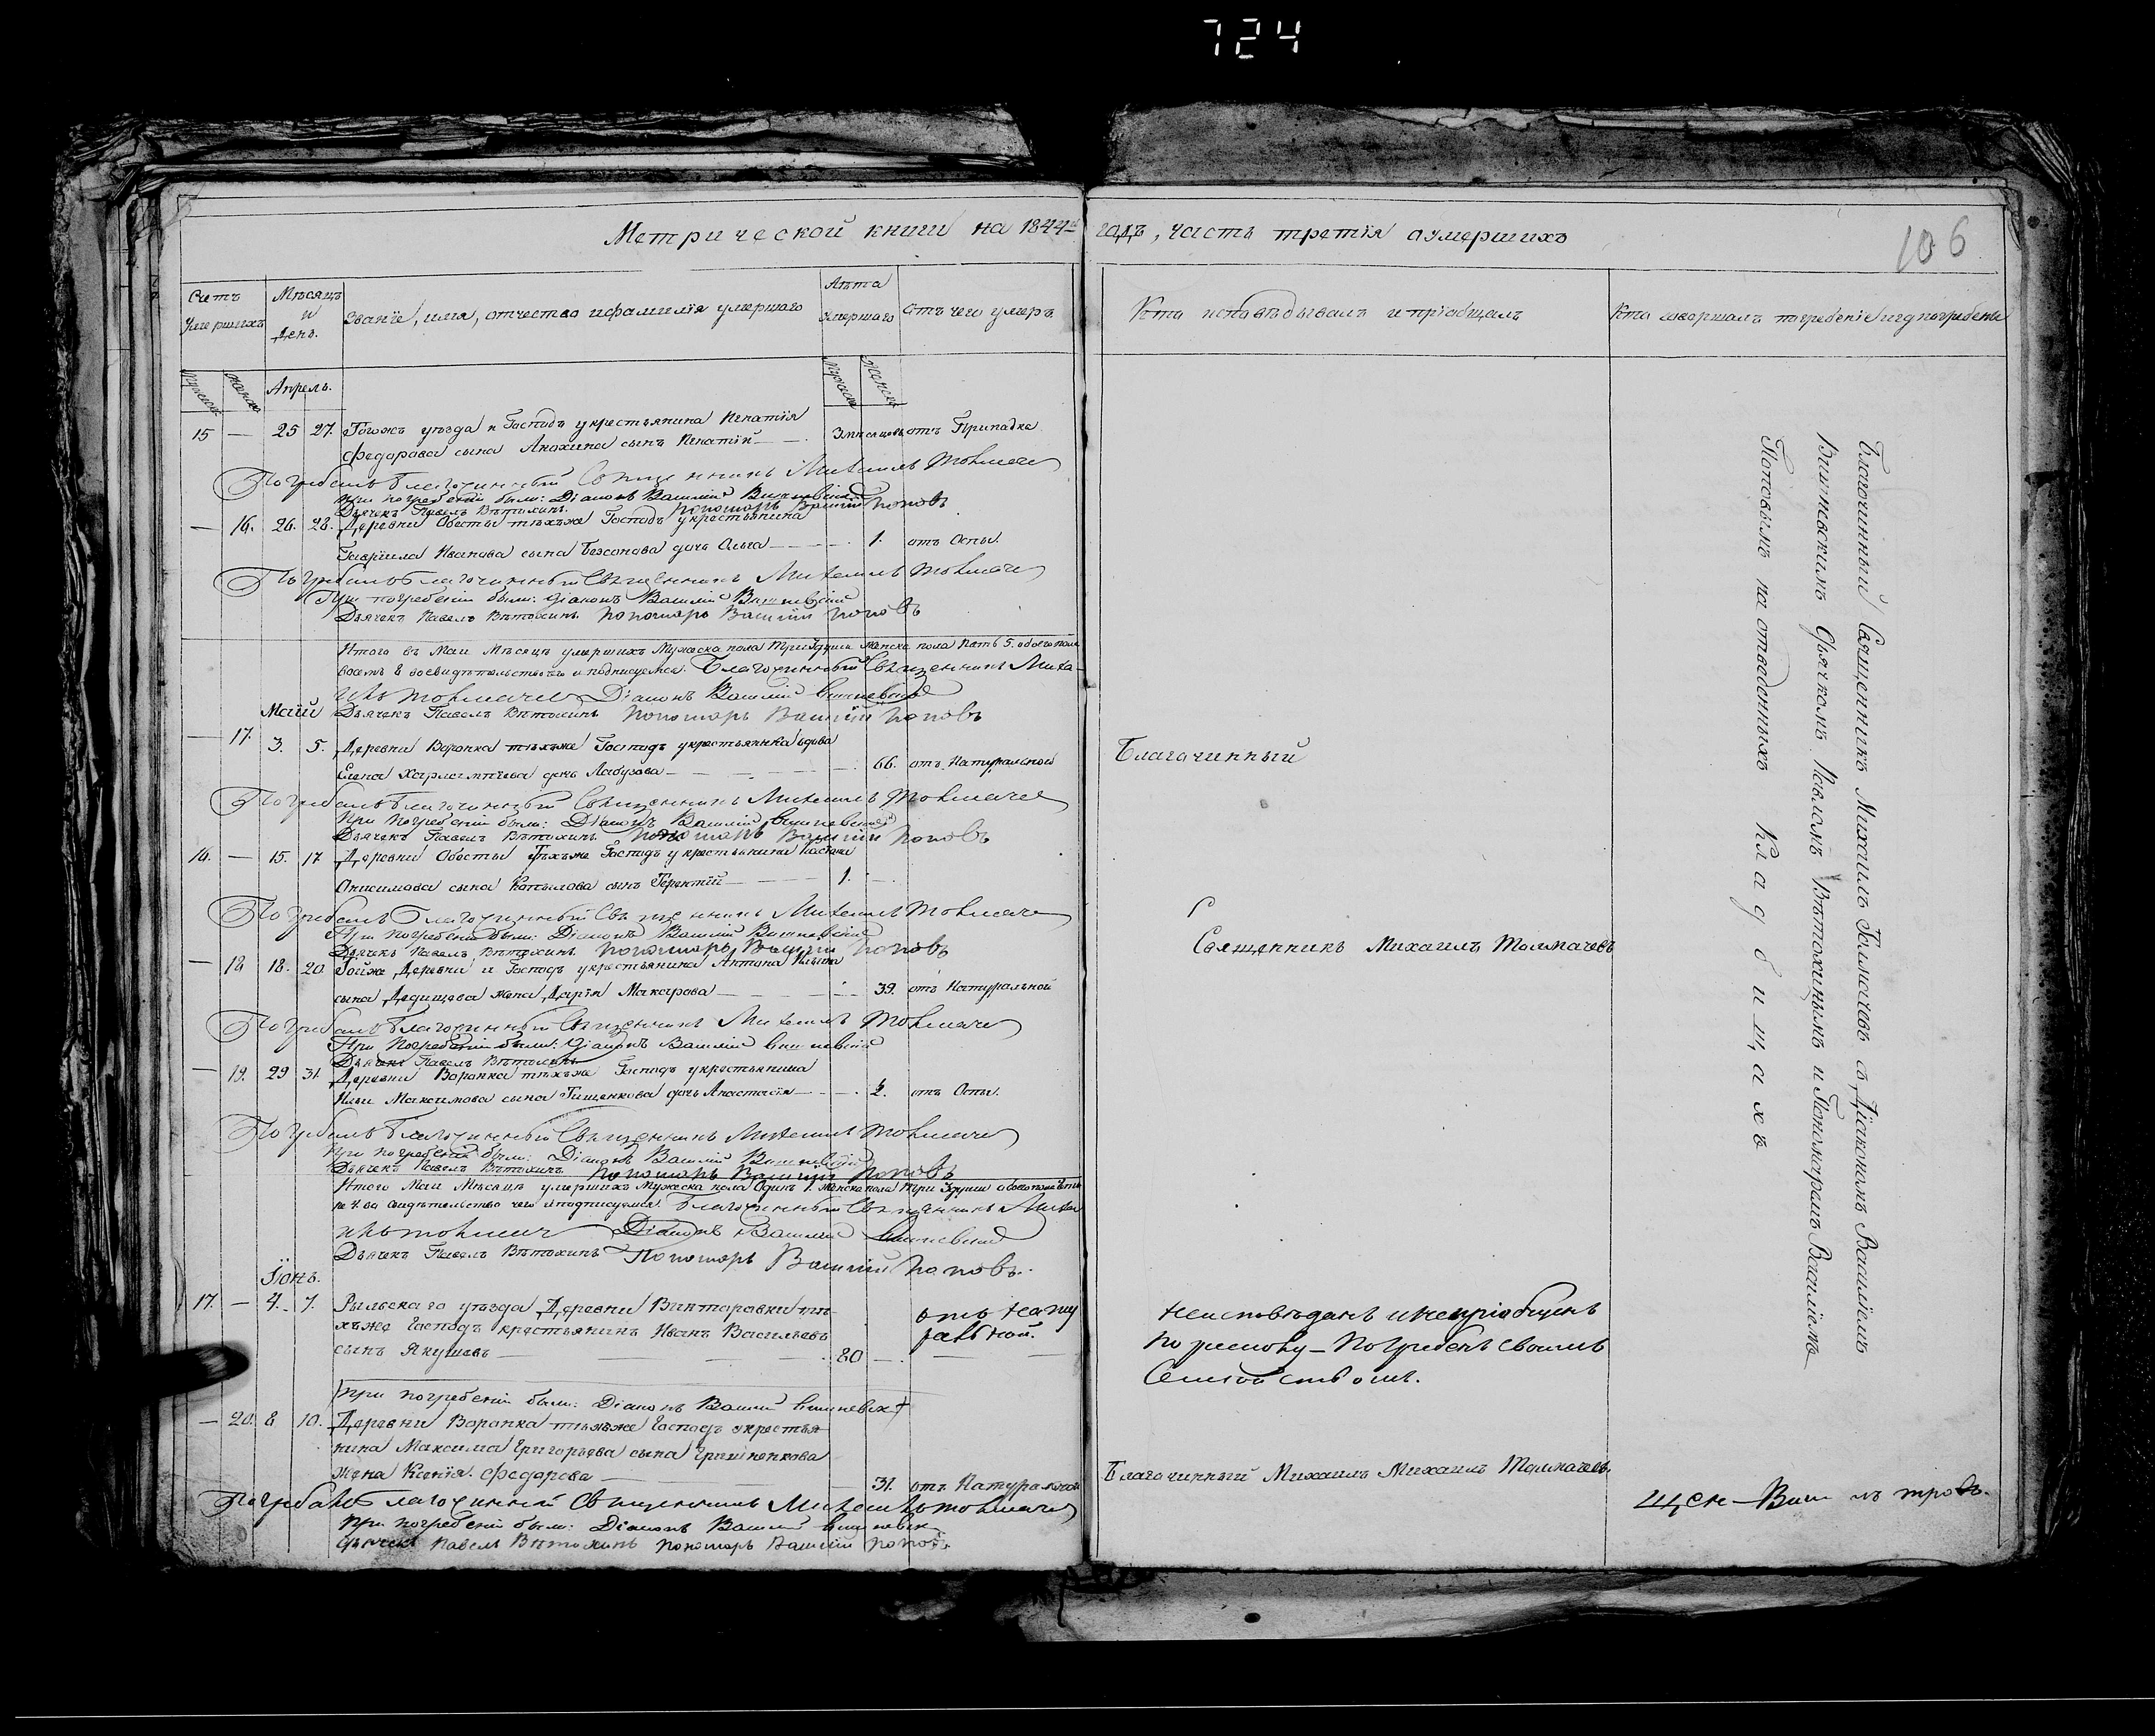 724
Метрической книги на 1844й годъ, часть третія оумершихъ
106
Счетъ умершихъ
Мѣсяцъ и День.
Званіе, имя, отчество ифамилія умершаго
Лѣта умершаго
Отъ чего умеръ
Кто исповѣдывалъ и пріобщалъ
Кто совершалъ погребеніе и гдѣ погребены
Апрель.
15 — 25 27. Тогожъ уѣзда и Господъ укрестьянина Игнатія
Федорова сына Анохина сынъ Игнатій — 3 мѣсяцовъ отъ Припадка
Погребалъ Благочинный Священникъ Михаилъ Толмачев
При погребеніи были: Діаконъ Василій Вишневскій
Дьячекъ Павелъ Вѣтохинъ. Пономарь Василій Поповъ
— 16. 26. 28. Деревни Обесты тѣхъже Господъ укрестьянина
Гаврила Иванова сына Безсонова дочь Ольга — 1. отъ Оспы.
Погребалъ Благочинный Священникъ Михаилъ Толмачев
При погребеніи были: Діаконъ Василій Вишневскій
Дьячекъ Павелъ Вѣтохинъ Пономарь Василій Поповъ
Итого въ Маи Мѣсяцѣ умершихъ Мужеска пола три 3 души женска пола пять 5. обоего пола
восемь 8 Благочинный Священникъ Миха-
илъ Толмачев Діаконъ Василій Вишневскій
Дьячекъ Павелъ Вѣтохинъ Пономарь Василій Поповъ
Маій
— 17. 3. 5. Деревни Воронка тѣхъже Господъ укрестьянина вдова
Елена Харлампіева дочь Лабузова — 66. отъ Натуральной
Благочинный
Погребалъ Благочинный Священникъ Михаилъ Толмачев
При погребеніи были: Діаконъ Василій Вишневскій
Дьячекъ Павелъ Вѣтохинъ. Пономарь Василій Поповъ
16. — 15. 17 Деревни Обесты Тѣхъже Господъ укрестьянина
Онисимова сына Копылова сынъ Терентій — 1. —
Погребалъ Благочинный Священникъ Михаилъ Толмачев
При погребеніи были: Діаконъ Василій Вишневскій
Дьячекъ Павелъ Вѣтохинъ Пономарь Василій Поповъ
Священникъ Михаилъ Толмачевъ
— 18 18. 20 Тойже Деревни и Господъ укрестьянина Антона
сына Дедищева жена Дарія Макарова — 39. отъ Натуральной
Погребалъ Благочинный Священникъ Михаилъ Толмачев
При Погребеніи были: Діаконъ Василій Вишневскій
Дьячекъ Павелъ Вѣтохинъ
— 19. 29 31 Деревни Воронка тѣхъже Господъ укрестьянина
Ильи Максимова сына Гишенкова дочь Анастасія — 2. отъ Оспы.
Погребалъ Благочинный Священникъ Михаилъ Толмачев
При погребеніи были: Діаконъ Василій Вишневскій
Дьячекъ Павелъ Вѣтохинъ Пономарь Василій Поповъ
Итого Маи Мѣсяцѣ умершихъ Мужеска пола Одинъ 1. женска пола три 3 души обоего пола четы
ре 4. во свидѣтельство чего иподписуемся. Благочинный Священникъ Миха
илъ Толмач Діаконъ Василій Вишневский
Дьячекъ Павелъ Вѣтохинъ Пономарь Василій Поповъ.
Іюнь.
17. — 4. 7. Рыльскаго уѣзда Деревни Винтаровки тѣ-
хъже Господъ крестьянинъ Иванъ Васильевъ
сынъ Якушевъ — 80 — отъ нату
ральной.
неисповѣданъ инепріобщенъ
По
Погребенъ своимъ
Семействомъ.
При погребеніи были: Діаконъ Василій Вишневск
— 20. 8 10. Деревни Воронка тѣхъже Господъ укрестья
нина Максима Григорьева сына Гришненкова
жена Ксенія Федорова — 31. отъ Натуральной
Благочинный Михаилъ Михаилъ Толмачевъ.
Погребалъ Благочинный Священникъ Михаилъ Толмачев
При погребеніи были: Діаконъ Василій Вишневск
Дьячекъ Павелъ Вѣтохинъ Пономарь Василій Поповъ
Благочинный Священникъ Михаилъ Толмачевъ съ Діакономъ Василіемъ
Вишневскимъ Дьячкомъ Павломъ Вѣтохинымъ и Пономаремъ Василіемъ
Поповымъ на отведенныхъ Кладбищахъ